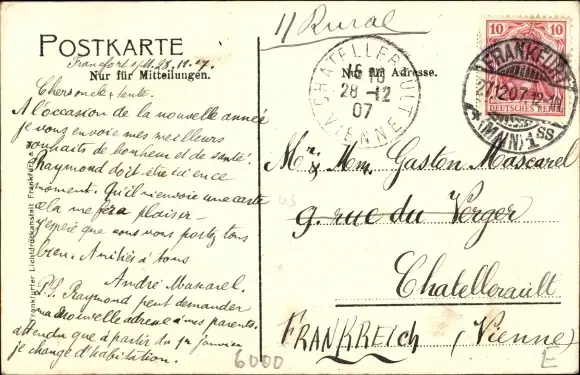 11 Rural
POSTKARTE
Francfort s/M. 28.12.07.
Nur für Mitteilungen.
Nur für Adresse.
Chers oncle & tante.
A l'occasion de la nouvelle année
je vous envoie mes meilleurs
souhaits de bonheur et de santé.
Raymond doit être ici en ce
moment. Qu'il m'envoie une carte
cela me fera plaisir —
J'espère que vous vous portez tous
bien. Amitiés à tous
André Mascarel.
P.S. Raymond peut demander
ma nouvelle adresse à mes parents.
attendu que à partir du 1er janvier
je change d'habitation.
Frankfurter Lichtdruckanstalt Frankfurt a.
CHATELLERAULT
28 - 12
07
VIENNE
10 10
DEUTSCHES REICH
FRANKFURT
12 07 12-1N
* (MAIN) 1 SS
Mr & Mm. Gaston Mascarel
9. rue du Verger
Chatellerault
FRANKREICH (Vienne)
6000
E